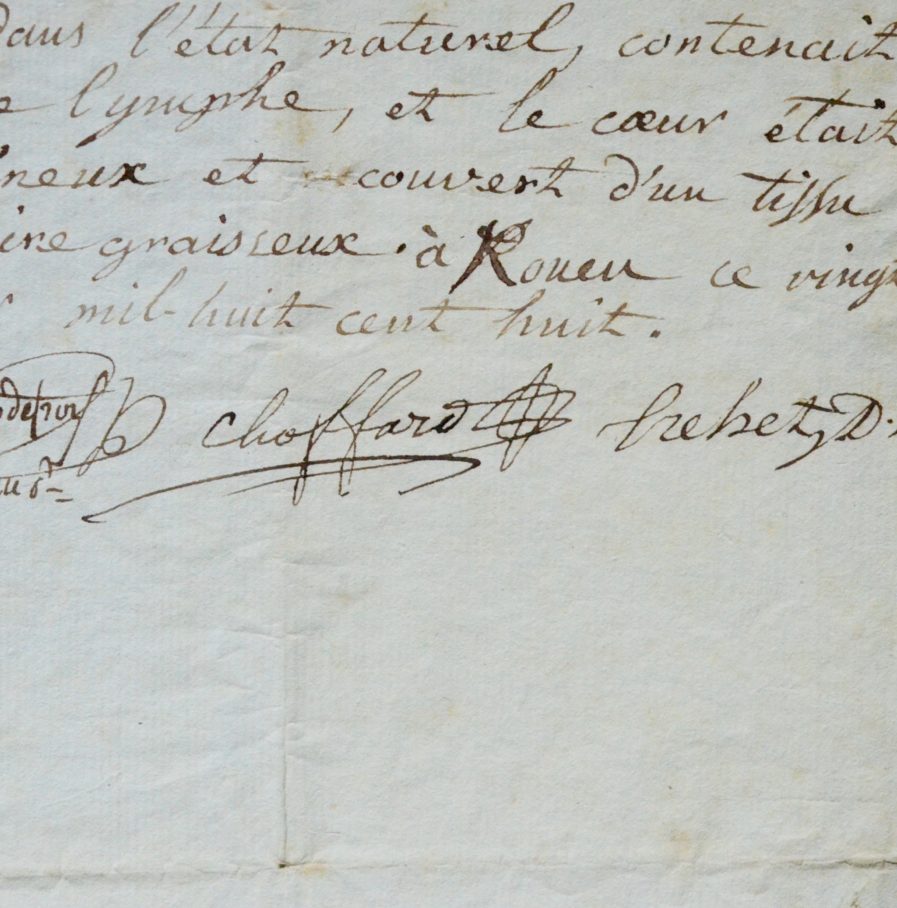 dans l'état naturel, contenait
lymphe, et le cœur était
neux et couvert d'un tissu
ire graisseux. à Rouen ce vingt
mil-huit cent huit.
Choffard hebet, D.